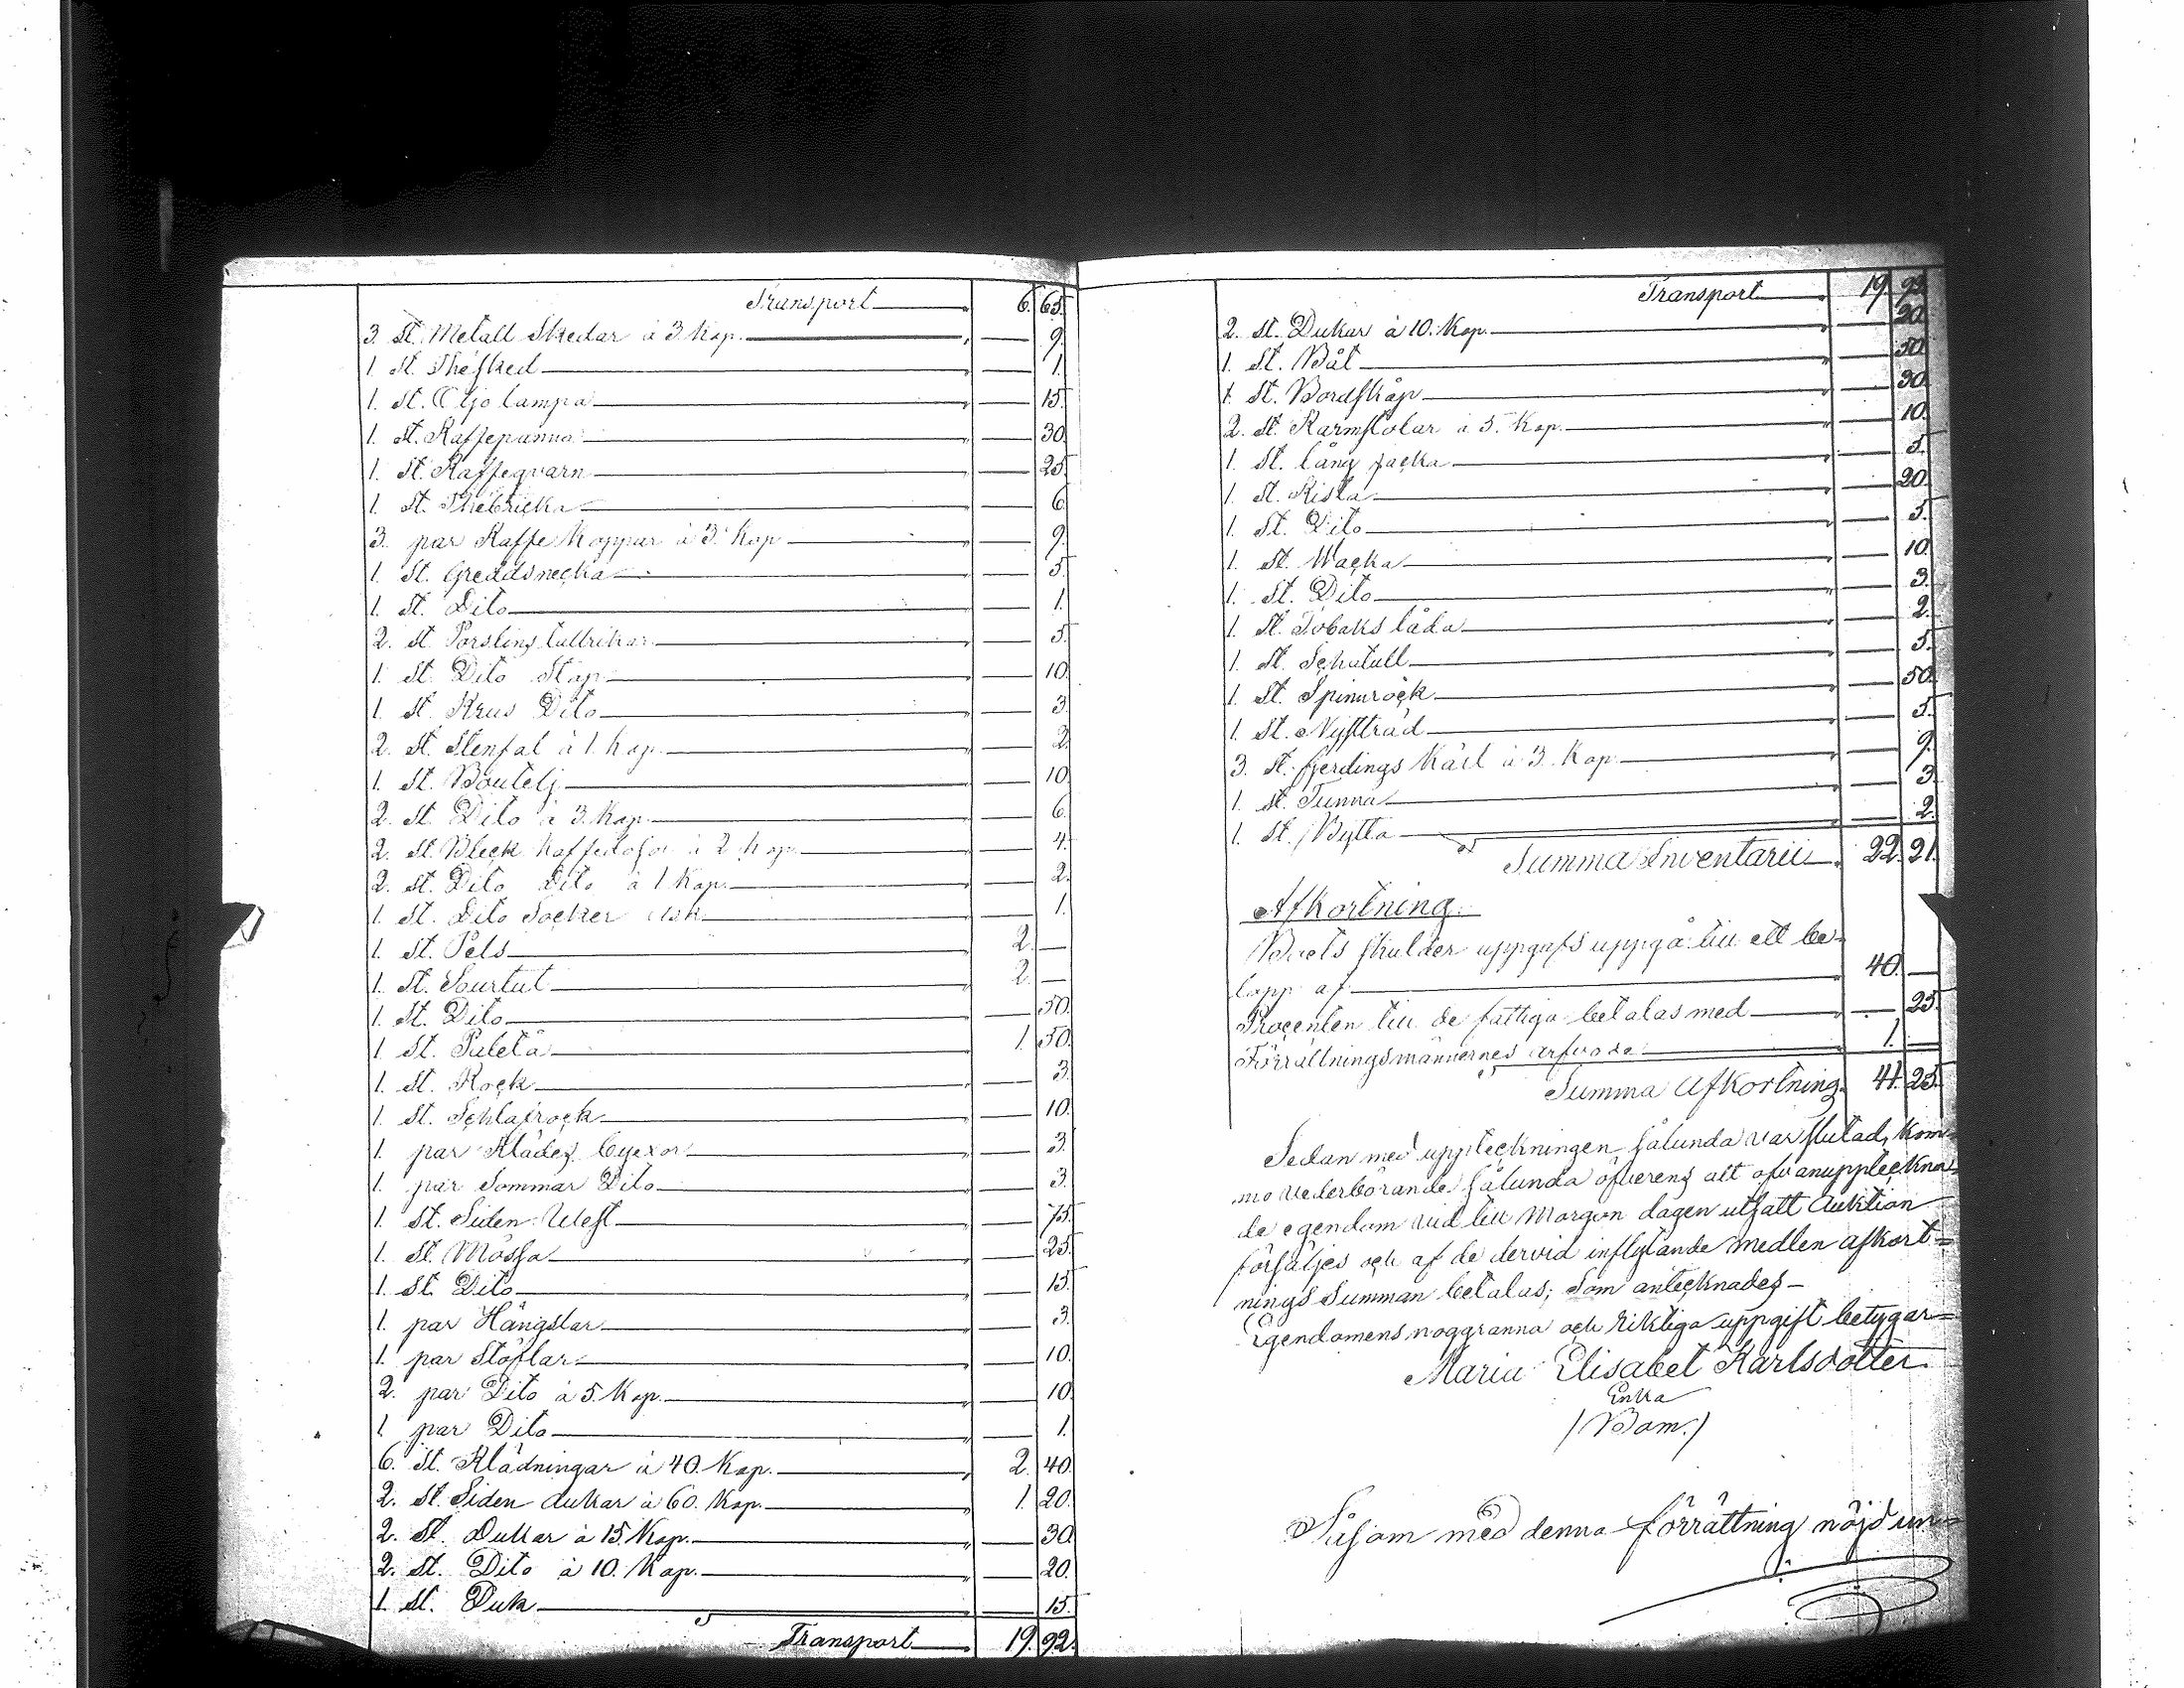 Transport 6. 65.
3. St. Metall Skedar à 3 Kop. 9.
1. St. Thésked 1.
1. St. Oljo lampa 15.
1. St. Kaffepanna 30.
1. St. Kaffeqvarn 25.
1. St. Thébricka 6.
3. par Kaffe Koppar à 3. Kop 9.
1. St. Greddsnecka 5.
1. St. Dito 1.
2. st Porslins tallrikar 5.
1. St. Dito Stop 10.
1. St. Krus Dito 3.
2. St. Stenfat à 1. kop. 2.
1. St. Boutelj 10.
2. St. Dito à 3. Kop. 6.
2. St. Bleck Kaffedosor à 2 kop. 4.
2. St. Dito Dito à 1 Kop. 2.
1. St. Dito Socker ask 1.
1. St. Pels 2. —
1. St. Sourtut 2. —
1. St. Dito 50.
1. St. Paletå 1. 50.
1. St. Rock 3.
1. St. Schlafrock 10.
1. par Klädes byxor 3.
1. par Sommar Dito 3.
1. St. Siden West 75.
1. St. Mössa 25.
1. St. Dito 15.
1. par Hängslar 3.
1. par Stöflar 10.
2. par Dito à 5. Kop. 10.
1. par Dito 1.
6. St. Klädningar à 40. Kop. 2. 40.
2. St. Siden dukar à 60. Kop. 1. 20.
2. St. Dukar à 15. Kop. 30.
2. St. Dito à 10. Kop. 20.
1. St. Duk 15.
Transport 19. 92.
Transport 19. 92.
2. St. Dukar à 10. Kop. 20.
1. St. Båt 50.
1. St. Bordskåp 30.
2. St. Karmstolar à 5. Kop. 10.
1. St. lång packa 5.
1. St. Kista 20.
1. St. Dito 5.
1. St. Wacka 10.
1. St. Dito 3.
1. St. Tobaks låda 2.
1. St. Schatull 5.
1. St. Spinnrock 50.
1. St. Nystträd 5.
3. St. fjerdings Kärl à 3. Kop. 9.
1. St. Tunna 3.
1. St. Bytta 2.
Summa Inventarii 22. 21.
Afkortning.
Boets skulder uppgafs uppgå till ett be-
lopp af 40. —
Procenten till de fattiga betalas med 25.
Förrättningsmännernes arfvode 1. —
Summa Afkortning 41. 25.
Sedan med uppteckningen sålunda var slutad, kom-
mo vederbörande sålunda öfverens att ofvanuppteckna-
de egendom vid till Morgon dagen utsatt Auktion
försäljes och af de dervid inflytande medlen afkort=
nings Summan betalas; som antecknades –
Egendomens noggranna och riktiga uppgift betygar=
Maria Elisabet Karlsdotter
Enka
/Bom./
Såsom med denna förrättning nöjd un=